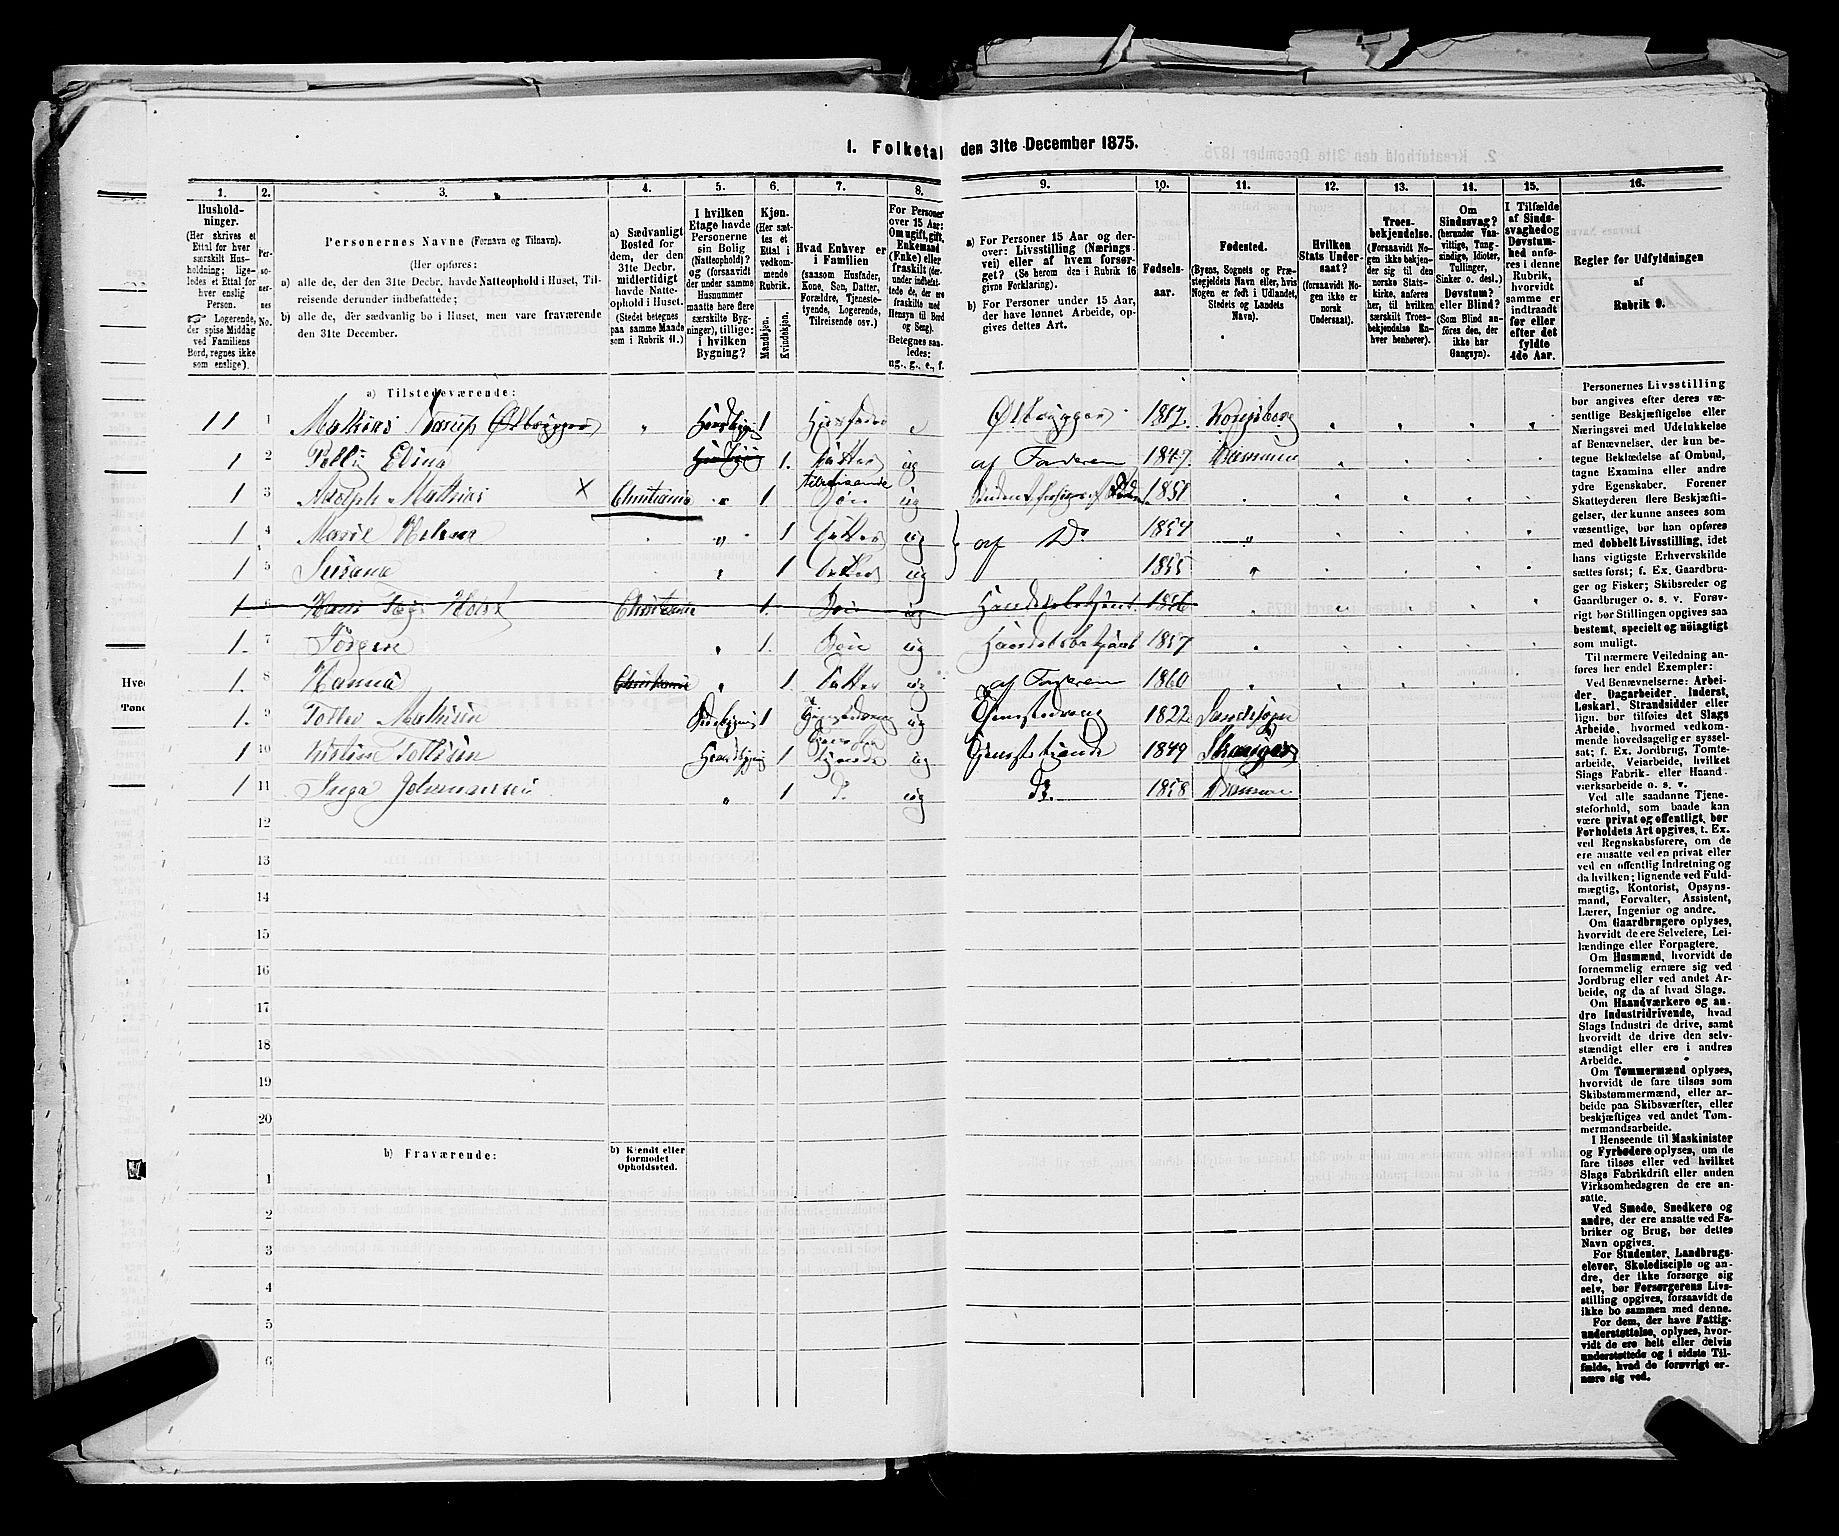 1. Folketal den 31te December 1875.
1. 2. 3. 4. 5. 6. 7. 8. 9. 10. 11. 12. 13. 14. 15. 16.
Hushold-
ninger.
(Her skrives et
Ettal for hver
særskilt Hus-
holdning; lige-
ledes et Ettal
for hver enslig
Person.
Logerende,
der spise Middag
ved Familiens
Bord, regnes ikke
som enslige).
Per-
so-
ner-
nes
No.
Personernes Navne (Fornavn og Tilnavn).
(Her opføres:
a) alle de, der den 31te Decbr. havde Natteophold i Huset, Til-
reisende derunder indbefattede;
b) alle de, der sædvanlig bo i Huset, men vare fraværende
den 31te December.
a) Sædvanligt
Bosted for
dem, der den
31te Decbr.
midlertidigt
havde Natte-
ophold i Huset.
(Stedet betegnes
paa samme Maade
som i Rubrik 11.)
I hvilken
Etage havde
Personerne
sin Bolig
(Natteophold)?
og (forsaavidt
der under samme
Husnummer
maatte høre flere
særskilte Byg-
ninger), tillige:
i hvilken
Bygning?
Kjøn.
(Her sæt-
tes et
Ettal i
vedkom-
mende
Rubrik.
Mandkjøn.
Kvindekjøn.
Hvad Enhver er
i Familien
(saasom Husfader,
Kone, Søn, Datter,
Forældre, Tjeneste-
tyende, Logerende,
Tilreisende osv.)
For Personer
over 15 Aar:
Om ugift, gift,
Enkemand
(Enke) eller
fraskilt
Betegnes saa-
ledes:
ug., g., e., f.
a) For Personer 15 Aar og der-
over: Livsstilling (Nærings-
vei) eller af hvem forsør-
get? (Se herom den i Rubrik 16
givne Forklaring).
b) For Personer under 15 Aar,
der have lønnet Arbeide, op-
gives dettes Art.
Fødsels-
aar.
Fødested.
(Byens, Sognets og Præ-
stegjeldets Navn, eller, hvis
Nogen er født i Udlandet,
Stedets og Landets
Navn).
Hvilken
Stats Under-
saat?
(forsaavidt No-
gen ikke er
norsk
Undersaat).
Troes-
bekjendelse.
(Forsaavidt No-
gen ikke bekjen-
der sig til den
norske Stats-
kirke, anføres
her, til hvilken
særskilt Troes-
bekjendelse En-
hver henhører).
Om
Sindssvag?
(herunder Van-
vittige, Tung-
sindige, Idioter,
Tullinger,
Sinker o. desl.)
Døvstum?
eller Blind?
(Som Blind an-
føres den, der
ikke har
Gangsyn).
I Tilfælde
af Sinds-
svaghed og
Døvstum-
hed anfø-
res i denne
Rubrik,
hvorvidt
samme er
indtraadt
før eller
efter det
fyldte
4de Aar.
Regler for Udfyldningen
af
Rubrik 9.
a) Tilstedeværende:
1 1 1 Mathias Ølbrygger 1 e Ølbrygger 1817 Kongsberg
1 2 Elina 1. Datter ug af Faderen 1847 Drammen
1 3 Adolph Mathias × Christiania 1 tilreisende Søn ug 1851
1 4 Marie 1 Datter ug af Do 1854
1 5 Susana 1 Datter ug 1855
1. 6 Hans Holst Christiania 1. Søn ug Handelsbetjent 1856
1. 7 Jørgen 1. Søn ug Handelsbetjent 1857
1 8 Hanna Christiania 1 Datter ug af Faderen 1860
1 9 Mathisen 1 Tjenestedreng ug Tjenestedreng 1822
1 10 1 Tyende ug Tjenestetyende 1849
1 11 Inga Johannesen 1 do. ug do. 1858 Drammen
12
13
14
15
16
17
18
19
20
b) Fraværende:
b) Kjendt eller
formodet
Opholdssted.
1
2
3
4
5
6
Personernes Livsstilling
bør angives efter deres væ-
sentlige Beskjæftigelse eller
Næringsvei med Udelukkelse
af Benævnelser, der kun be-
tegne Beklædelse af Ombud,
tagne Examina eller andre
ydre Egenskaber. Forener
Skatteyderen flere Beskjæfti-
gelser, der kunne ansees som
væsentlige, bør han opføres
med dobbelt Livsstilling, idet
hans vigtigste Erhvervskilde
sættes først; f. Ex. Gaardbru-
ger og Fisker; Skibsreder og
Gaardbruger o. s. v. Forøv-
rigt bør Stillingen opgives saa
bestemt, specielt og nöiagtigt
som muligt.
Til nærmere Veiledning an-
føres her endel Exempler:
Ved Benævnelserne: Arbei-
der, Dagarbeider, Inderst,
Løskarl, Strandsidder eller
lign. bør tilføies det Slags
Arbeide, hvormed vedkom-
mende hovedsagelig er syssel-
sat; f. Ex. Jordbrug, Tomte-
arbeide, Veiarbeide, hvilket
Slags Fabrik- eller Haand-
værksarbeide o. s. v.
Ved alle saadanne Tjene-
steforhold, som baade kan
være privat og offentligt, bør
Forholdets Art opgives, f. Ex.
ved Regnskabsførere, om de
ere ansatte ved en privat eller
ved en offentlig Indretning og
da hvilken; lignende ved Fuld-
mægtig, Kontorist, Opsyns-
mand, Forvalter, Assistent,
Lærer, Ingeniør og andre.
Om Gaardbrugere oplyses,
hvorvidt de ere Selveiere, Lei-
lændinge eller Forpagtere.
Om Husmænd, hvorvidt de
fornemmelig ernære sig ved
Jordbrug eller ved andet Ar-
beide, og da af hvad Slags.
Om Haandværkere og an-
dre Industridrivende, hvad
Slags Industri de drive, samt
hvorvidt de drive den selv-
stændigt eller ere i andres
Arbeide.
Om Tømmermænd oplyses,
hvorvidt de fare tilsøs som
Skibstømmermænd, eller ar-
beide paa Skibsværfter, eller
beskjæftiges ved andet Tøm-
mermandsarbeide.
I Henseende til Maskinister
og Fyrbødere oplyses, om de
fare tilsøs eller ved hvilket
Slags Fabrikdrift eller anden
Virksomhedsgren de ere an-
satte.
Ved Smede, Snedkere og
andre, der ere ansatte ved Fa-
briker og Brug, bør dettes
Navn opgives.
For Studenter, Landbrugs-
elever, Skoledisciple og an-
dre, der ikke forsørge sig
selv, bør Forsørgerens Livs-
stilling opgives, forsaavidt de
ikke bo sammen med denne.
For dem, der have Fattig-
understøttelse, oplyses, hvor-
vidt de ere helt eller delvis
understøttede og i sidste Til-
fælde, hvad de forøvrigt er-
nære sig ved.